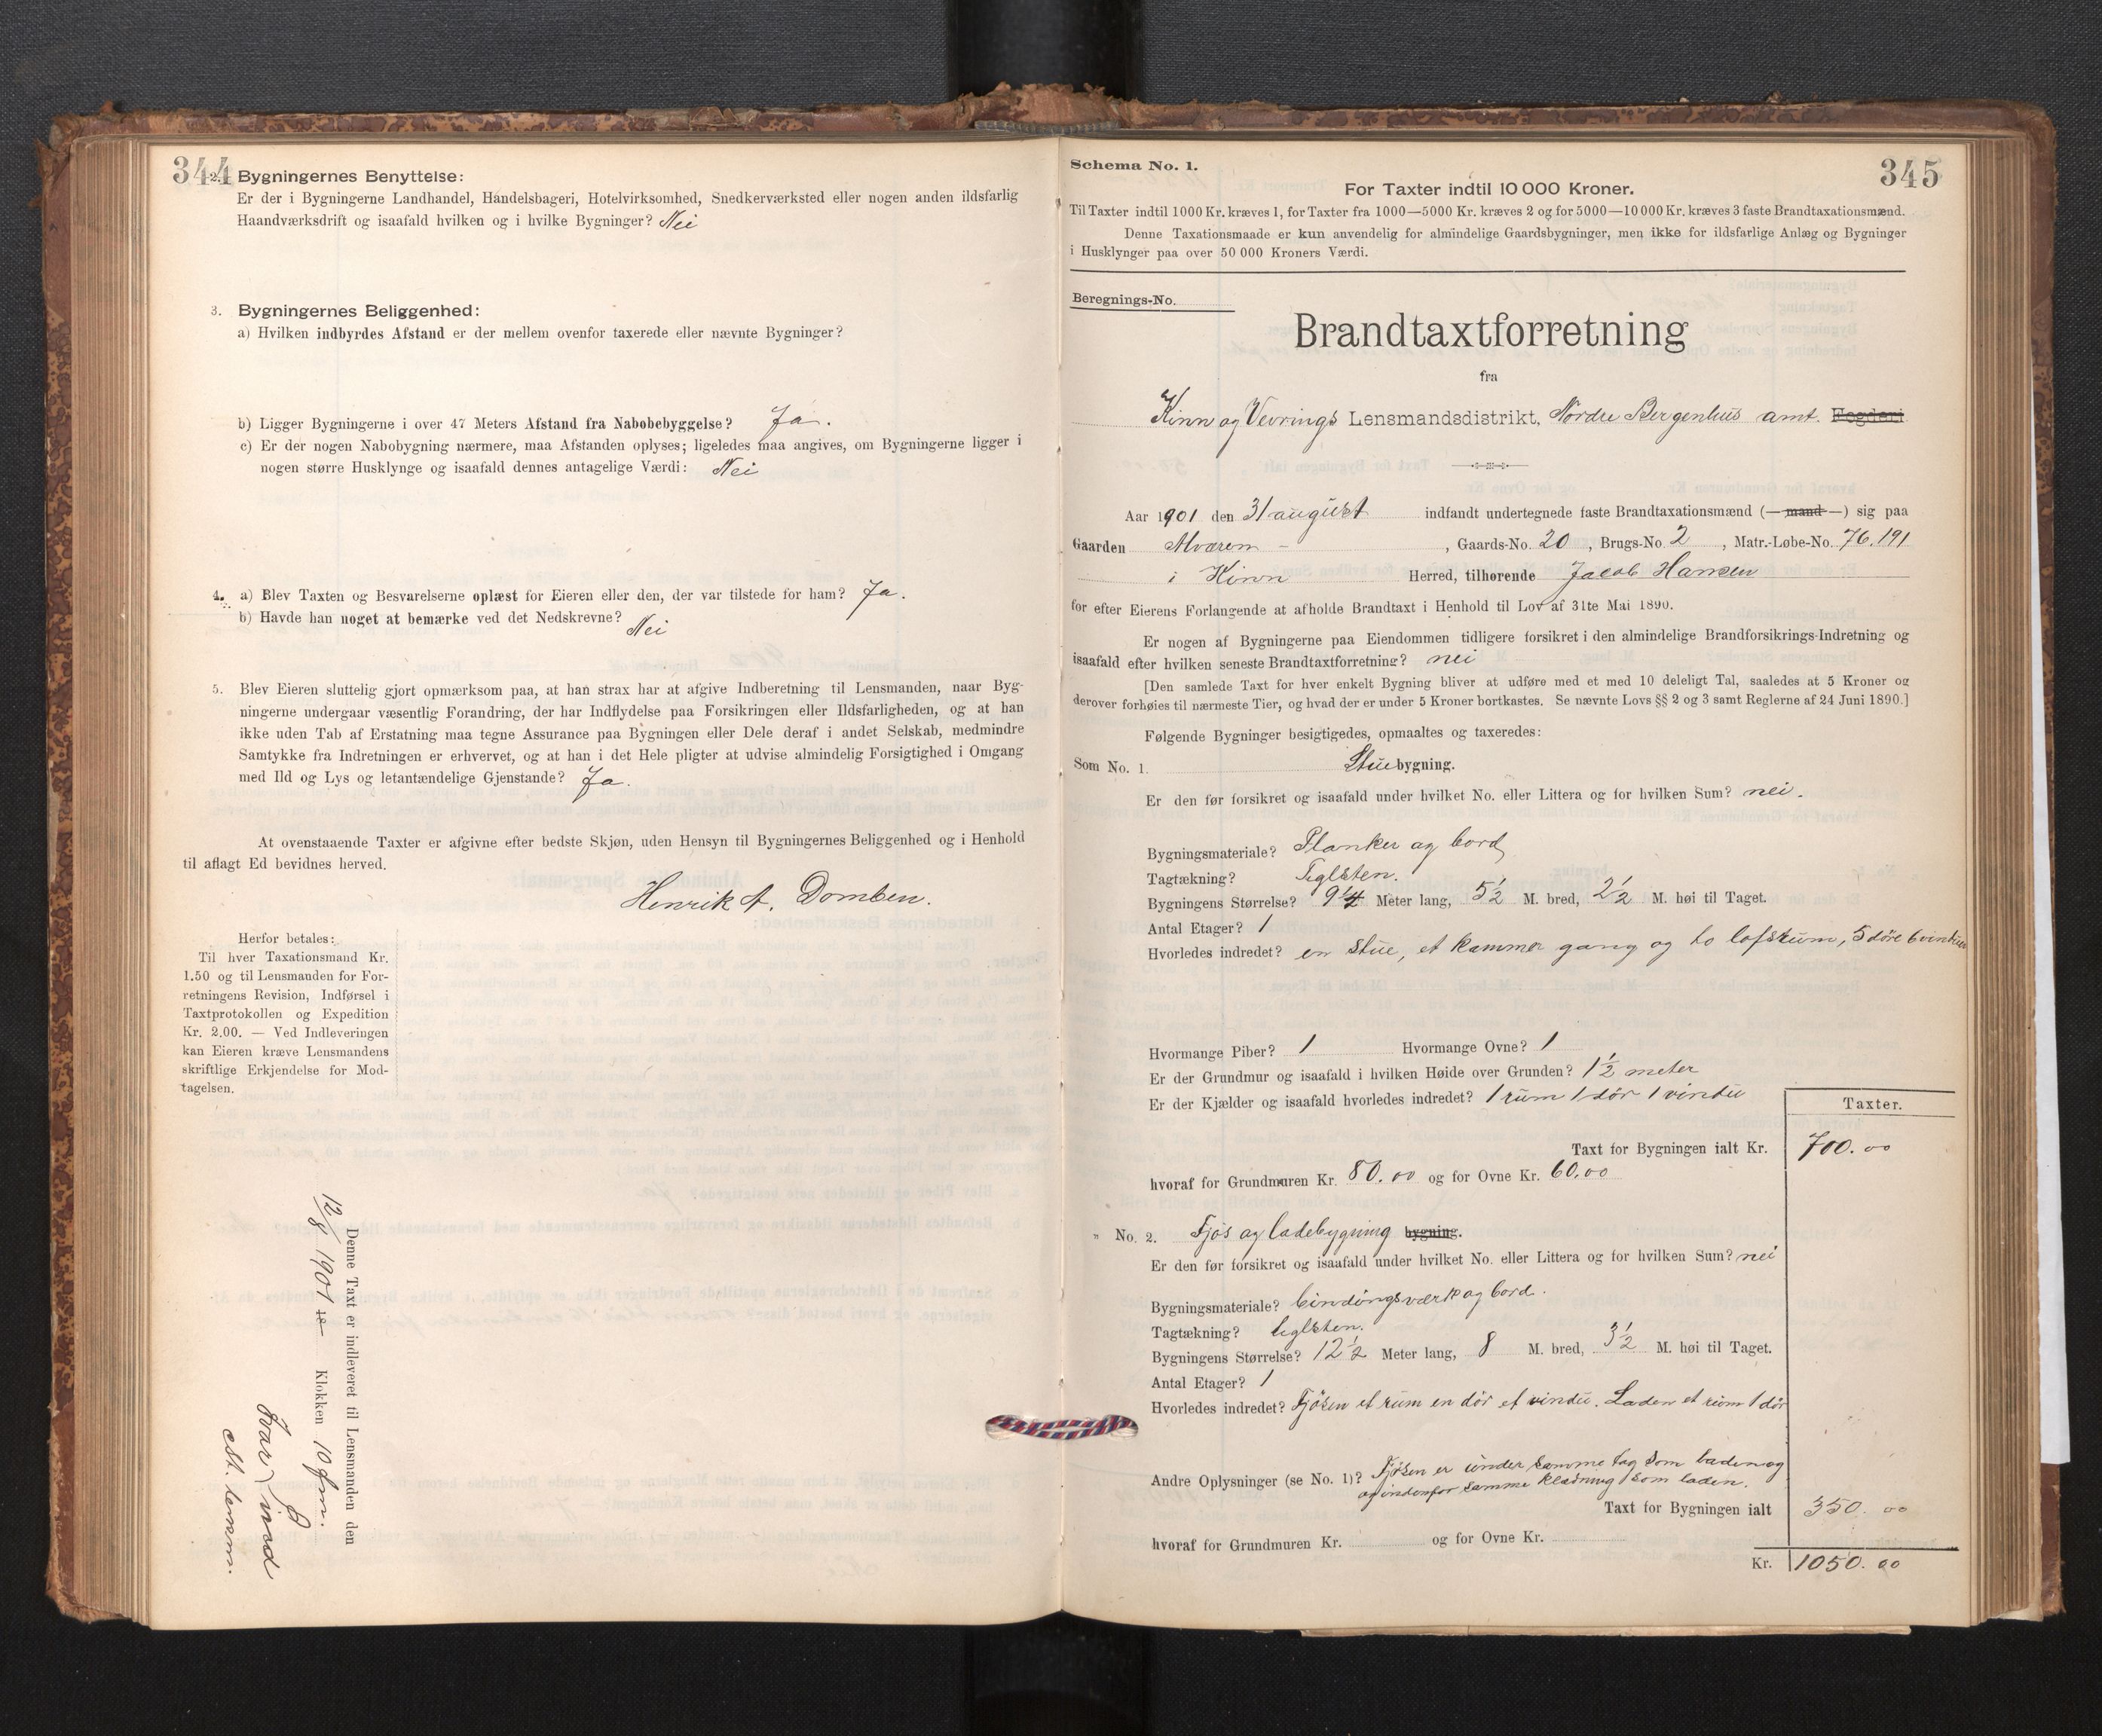 344
2. Bygningernes Benyttelse:
Er der i Bygningerne Landhandel, Handelsbageri, Hotelvirksomhed, Snedkerværksted eller nogen anden ildsfarlig
Haandværksdrift og isaafald hvilken og i hvilke Bygninger? Nei
3. Bygningernes Beliggenhed:
a) Hvilken indbyrdes Afstand er der mellem ovenfor taxerede eller nævnte Bygninger?
b) Ligger Bygningerne i over 47 Meters Afstand fra Nabobebyggelse? Ja.
c) Er der nogen Nabobygning nærmere, maa Afstanden oplyses; ligeledes maa angives, om Bygningerne ligger i
nogen større Husklynge og isaafald dennes antagelige Værdi: Nei
4. a) Blev Taxten og Besvarelserne oplæst for Eieren eller den, der var tilstede for ham? Ja.
b) Havde han noget at bemærke ved det Nedskrevne? Nei
5. Blev Eieren sluttelig gjort opmærksom paa, at han strax har at afgive Indberetning til Lensmanden, naar Byg-
ningerne undergaar væsentlig Forandring, der har Indflydelse paa Forsikringen eller Ildsfarligheden, og at han
ikke uden Tab af Erstatning maa tegne Assurance paa Bygningen eller Dele deraf i andet Selskab, medmindre
Samtykke fra Indretningen er erhvervet, og at han i det Hele pligter at udvise almindelig Forsigtighed i Omgang
med Ild og Lys og letantændelige Gjenstande? Ja.
At ovenstaaende Taxter er afgivne efter bedste Skjøn, uden Hensyn til Bygningernes Beliggenhed og i Henhold
til aflagt Ed bevidnes herved.
Henrik A. Domben.
Herfor betales:
Til hver Taxationsmand Kr.
1.50 og til Lensmanden for For-
retningens Revision, Indførsel i
Taxtprotokollen og Expedition
Kr. 2.00. — Ved Indleveringen
kan Eieren kræve Lensmandens
skriftlige Erkjendelse for Mod-
tagelsen.
Denne Taxt er indleveret til Lensmanden den
12/8 1901 18 Klokken 10 fm.
st. lensm.
345
Schema No. 1.
For Taxter indtil 10 000 Kroner.
Til Taxter indtil 1000 Kr. kræves 1, for Taxter fra 1000—5000 Kr. kræves 2 og for 5000—10 000 Kr. kræves 3 faste Brandtaxationsmænd.
Denne Taxationsmaade er kun anvendelig for almindelige Gaardsbygninger, men ikke for ildsfarlige Anlæg og Bygninger
i Husklynger paa over 50 000 Kroners Værdi.
Beregnings-No.
Brandtaxtforretning
fra
Kinn og Vevrings Lensmandsdistrikt, Nordre Bergenhus amt. Fogderi
Aar 1901 den 31 august indfandt undertegnede faste Brandtaxationsmænd (— mand —) sig paa
Gaarden Alværen, Gaards-No. 20, Brugs-No. 2, Matr.-Løbe-No. 76.191
i Kinn Herred, tilhørende Jacob Hansen
for efter Eierens Forlangende at afholde Brandtaxt i Henhold til Lov af 31te Mai 1890.
Er nogen af Bygningerne paa Eiendommen tidligere forsikret i den almindelige Brandforsikrings-Indretning og
isaafald efter hvilken seneste Brandtaxtforretning? nei
[Den samlede Taxt for hver enkelt Bygning bliver at udføre med et med 10 deleligt Tal, saaledes at 5 Kroner og
derover forhøies til nærmeste Tier, og hvad der er under 5 Kroner bortkastes. Se nævnte Lovs §§ 2 og 3 samt Reglerne af 24 Juni 1890.]
Følgende Bygninger besigtigedes, opmaaltes og taxeredes:
Som No. 1. Stuebygning.
Er den før forsikret og isaafald under hvilket No. eller Littera og for hvilken Sum? nei.
Bygningsmateriale? Planker og bord
Tagtækning? Teglsten.
Bygningens Størrelse? 9 1/4 Meter lang, 5 1/2 M. bred, 2 1/2 M. høi til Taget.
Antal Etager? 1
Hvorledes indredet? en stue, et kammer gang og to lofsrum, 5 döre 6 vinduer
Hvormange Piber? 1 Hvormange Ovne? 1
Er der Grundmur og isaafald i hvilken Høide over Grunden? 1 1/2 meter
Er der Kjælder og isaafald hvorledes indredet? 1 rum 1 dör 1 vindu
Taxter.
Taxt for Bygningen ialt Kr. 700.00
hvoraf for Grundmuren Kr. 80.00 og for Ovne Kr. 60.00
" No. 2. Fjös og ladebygning bygning.
Er den før forsikret og isaafald under hvilket No. eller Littera og for hvilken Sum? nei
Bygningsmateriale? bindingsværk og bord.
Tagtækning? teglsten.
Bygningens Størrelse? 12 1/2 Meter lang, 8 M. bred, 3 1/2 M. høi til Taget.
Antal Etager? 1
Hvorledes indredet? Fjösen et rum en dör et vindu. Laden et rum 1 dör
Andre Oplysninger (se No. 1)? Fjösen er under samme tag som laden og
og indenfor samme klædning som laden.
Taxt for Bygningen ialt 350.00
hvoraf for Grundmuren Kr. og for Ovne Kr.
Kr. 1050.00